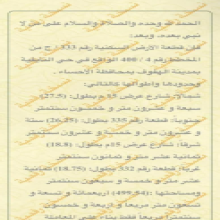 الحمد لله وحده والصلاة والسلام على من لا
نبي بعده، وبعد:
فإن قطعة الأرض السكنية رقم 333 / ج من
المخطط رقم 4 / 486 الواقع في حي الشرقية
بمدينة الهفوف بمحافظة الأحساء
وحدودها وأطوالها كالتالي:
شمالاً: شارع عرض م بطول: (27.5)
سبعة و عشرون متر و خمسون سنتمتر
جنوباً: قطعة رقم 335 بطول: (26.25) ستة
و عشرون متر و خمسة و عشرون سنتمتر
شرقاً: شارع عرض م بطول: (18.8)
ثمانية عشر متر و ثمانون سنتمتر
غرباً: قطعة رقم 332 بطول: (18.75) ثمانية
عشر متر و خمسة و سبعون سنتمتر
ومساحتها: (499.54) أربعمائة و تسعة و
تسعون متر مربعاً و أربعة و خمسون
سنتمتراً مربعاً فقط بناء على المعاملة